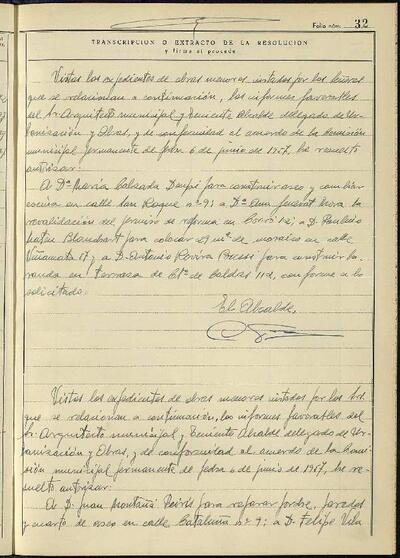 Folio núm. 32
TRANSCRIPCION O EXTRACTO DE LA RESOLUCION
y firma si procede
Vistos los expedientes de obras menores instados por los
que se relacionan a continuación, los informes favorables
del Sr. Arquitecto municipal y Teniente Alcalde delegado de Ur-
banización y Obras, y de conformidad al acuerdo de la Comisión
municipal permanente de fecha 6 de junio de 1967, he resuelto
autorizar:
A Dª María Calzada para construir aseo y cambiar
en calle San Roque nº 93 a Dª Ana
revalidación del permiso de reforma en a D.
Mateu Blanchart para colocar m² de mosaico en calle
Viñamata 17 y a D. Antonio Rovira para construir ba-
randa en terraza de Ctª de Caldas 112, conforme a lo
solicitado.
El Alcalde,
Vistos los expedientes de obras menores instados por los Srs.
que se relacionan a continuación, los informes favorables del
Sr. Arquitecto municipal, y Teniente Alcalde delegado de Ur-
banización y Obras, y de conformidad al acuerdo de la Comi-
sión municipal permanente de fecha 6 de junio de 1967, he re-
suelto autorizar:
A D. Juan Montañá para reparar paredes
y cuarto de aseo en calle Cataluña nº 9: a D. Felipe Vila